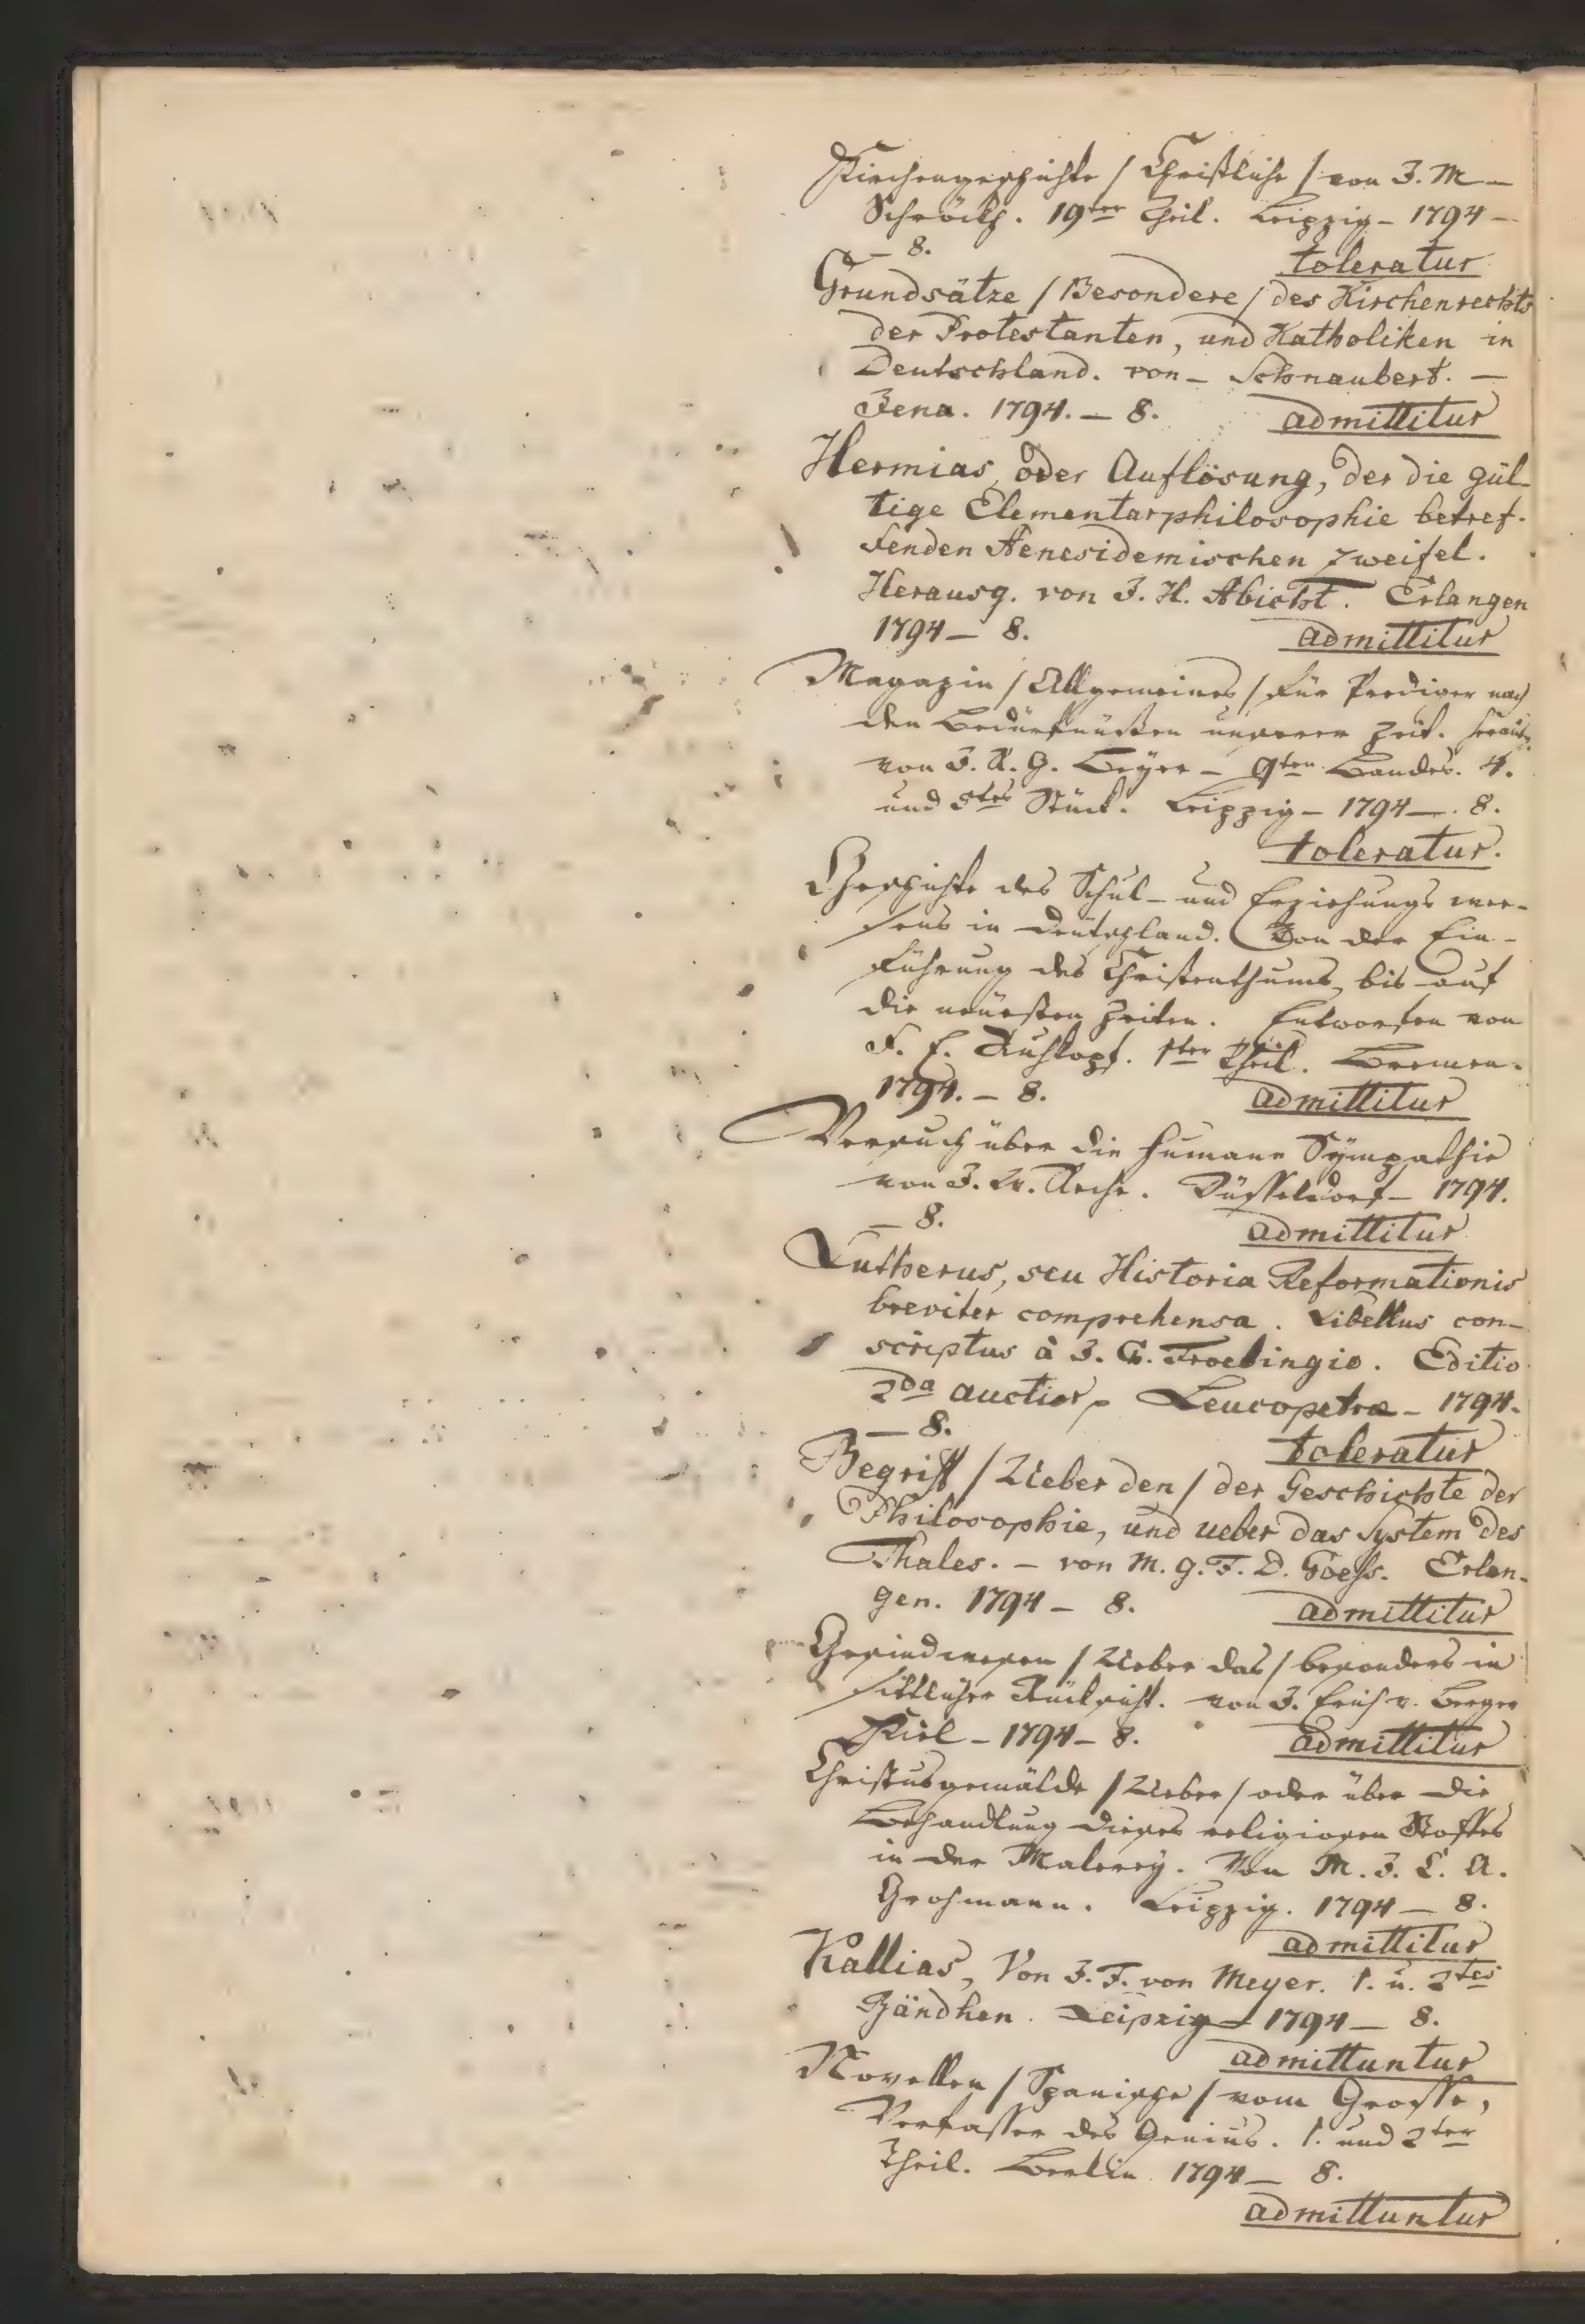 Kirchengeschichte / Christliche / von J. M –
Schröckh. 19ter Theil. Leipzig – 1794 –
– 8. toleratur
Grundsätze / Besondere / des Kirchenrechts
der Protestanten, und Katholiken in
Deutschland. von – Schnaubert. –
Jena. 1794. – 8. admittitur
Hermias, oder Auflösung, der die gül-
tige Elementarphilosophie betref-
fenden Aenesidemischen Zweifel.
Herausg. von J. H. Abicht. Erlangen
1794 – 8. admittitur
Magazin / Allgemeines / für Prediger nach
den Bedürfnüßen unserer Zeit. herausg.
von J. R. G. Beÿer – 9ten Bandes. 4.
und 5tes Stück. Leipzig – 1794 – 8.
toleratur.
Geschichte des Schul- und Erziehungs wee-
sens in Deutschland. Von der Ein-
führung des Christenthums, bis auf
die neüesten Zeiten. Entworfen von
F. E. Ruhkopf. 1ter Theil. Bremen.
1794. – 8. admittitur
Versuch über die humane Sÿmpathie
von J. W. Reche. Düsseldorf – 1794.
– 8. admittitur
Lutherus, seu Historia Reformationis
breviter comprehensa. Libellus con-
scriptus à J. G. Troebingio. Editio
2da auctior, Leucopetræ – 1794.
– 8. toleratur
Begriff / Ueber den / der Geschichte der
Philosophie, und ueber das System des
Thales. – von M. G. F. D. Goess. Erlan-
gen. 1794 – 8. admittitur
Gesindwesen / Ueber das / besonders in
sittlicher Rücksicht. von J. Erich v. Berger
Kiel – 1794 – 8. admittitur
Christusgemälde / Ueber / oder über die
Behandlung dieses religiosen Stoffes
in der Malereÿ. Von M. J. C. A.
Grohmann. Leipzig. 1794 – 8.
admittitur
Kallias, Von J. F. von Meyer. 1. u. 2tes
Bändhen. Leipzig – 1794 – 8.
admittuntur
Novellen / Spanische / vom Grosse,
Verfasser des Genius. 1. und 2ter
Theil. Berlin 1794 – 8.
admittuntur